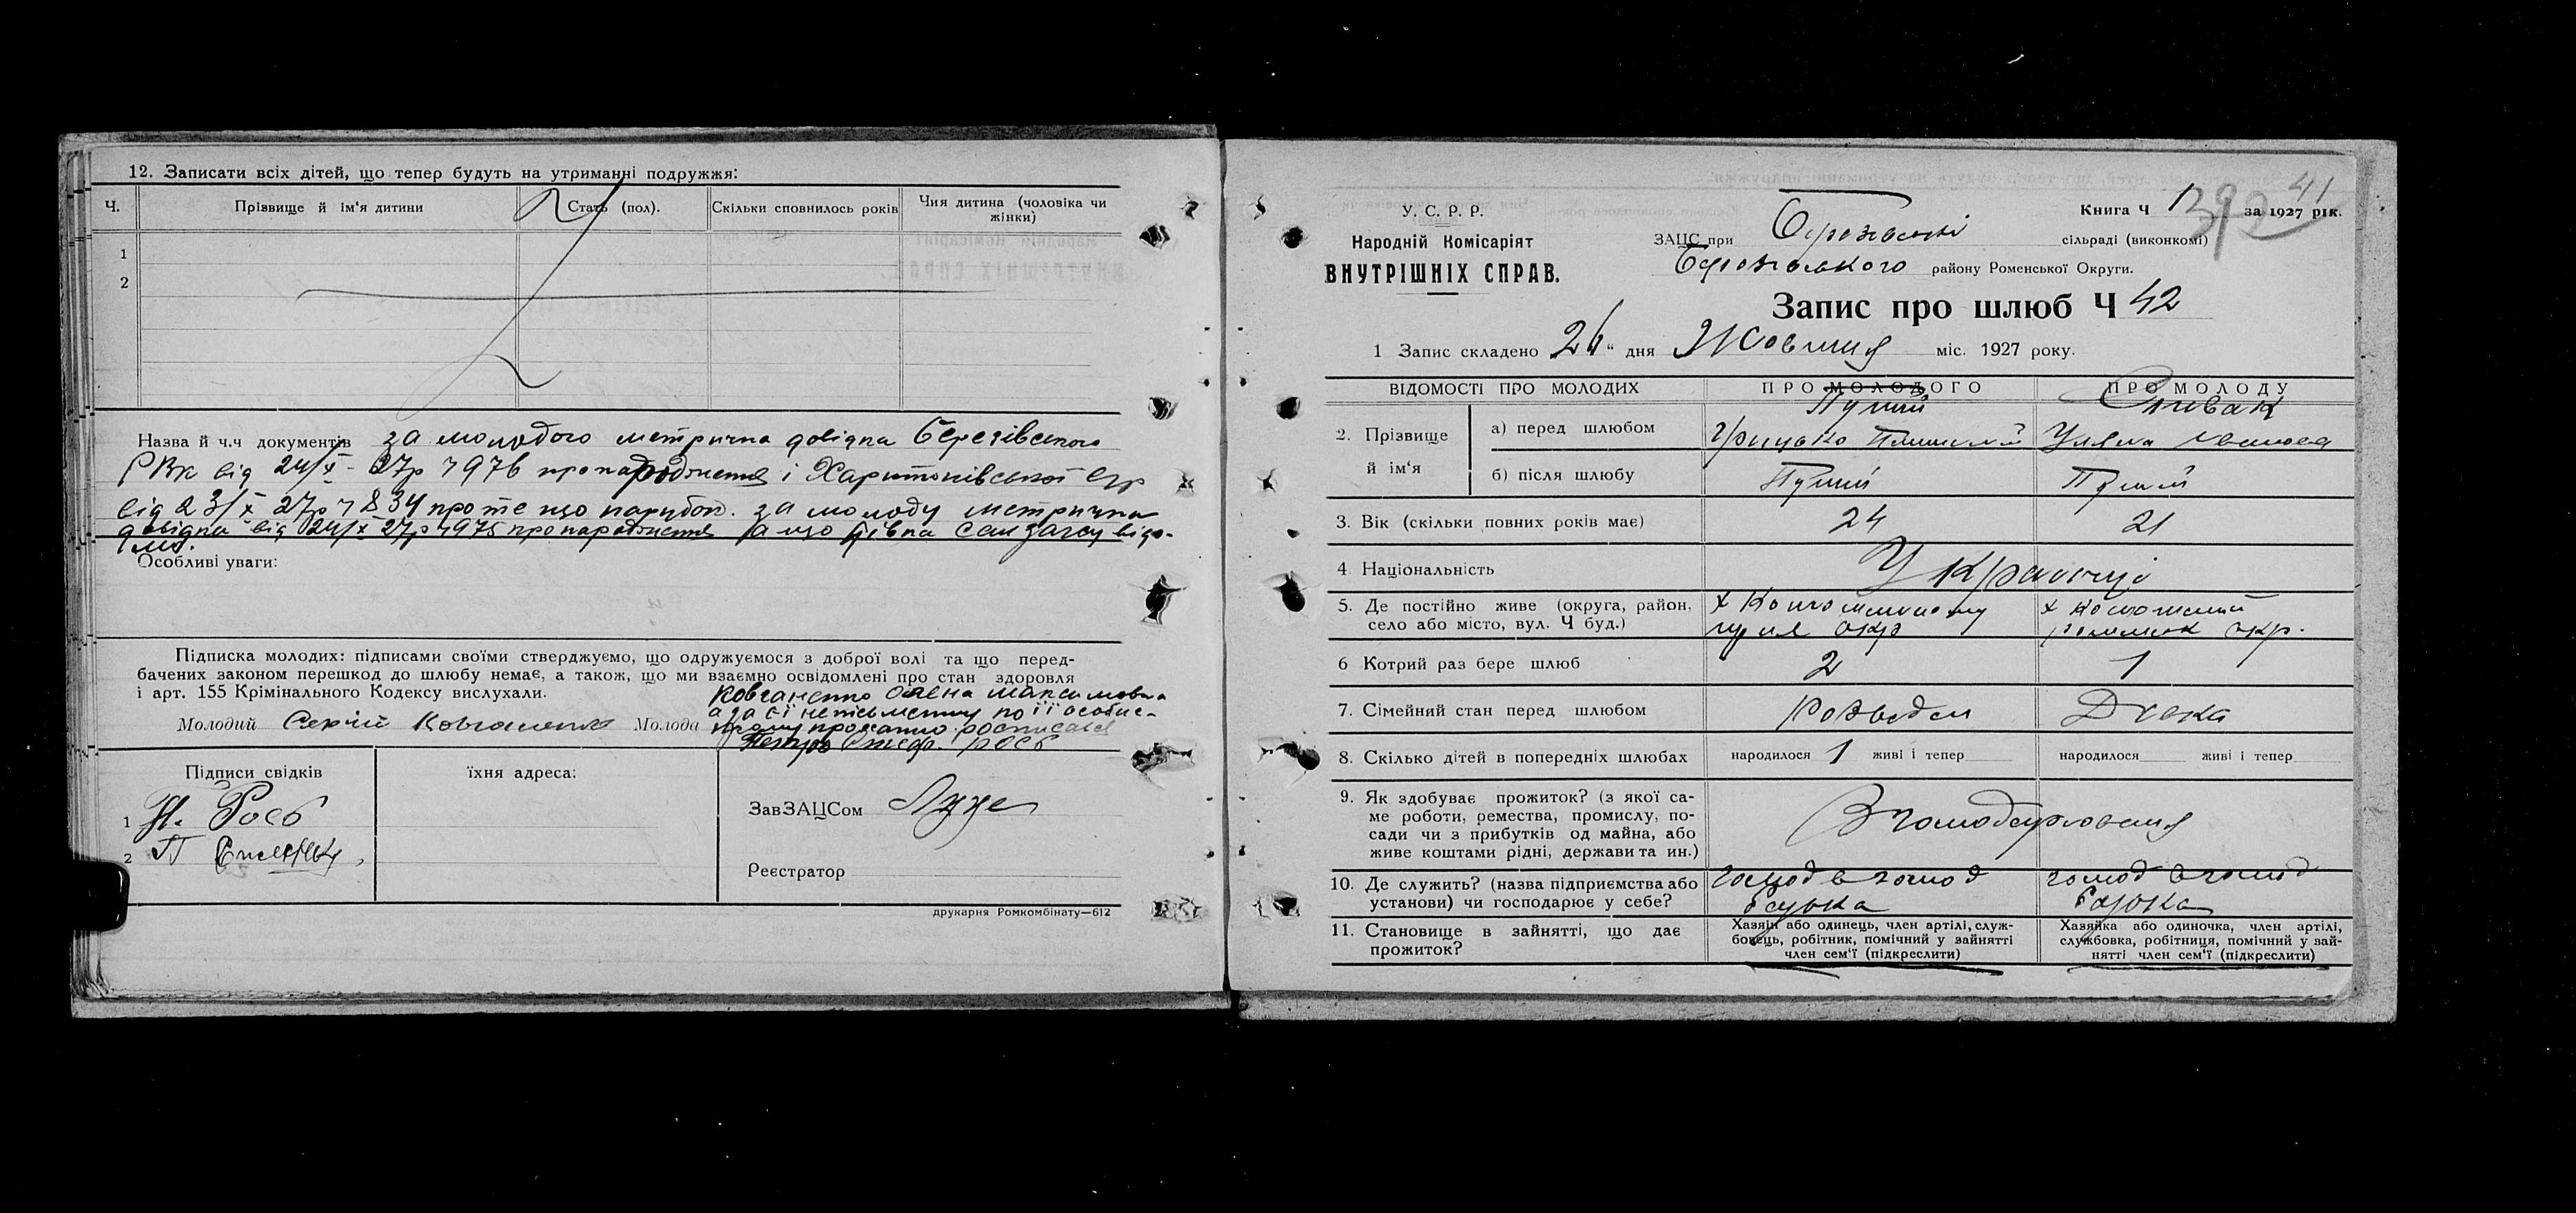 12. Записати всіх дітей, що тепер будуть на утриманні подружжя:
Ч.
Прізвище й ім'я дитини
Стать (пол).
Скільки сповнилось років
Чия дитина (чоловіка чи жінки)
1
2
Назва й ч.ч документів за молодого метрична довідка Березівського
РВК від 24/X - 27р ч 976 про народження і Харитонівської с/р
від 23/X 27р ч 834 про те що парубок. за молоду метрична
довідка від 24/X 27р ч 975 про народження а що дівка сам загсу відо-
мо.
Особливі уваги:
Підписка молодих: підписами своїми стверджуємо, що одружуємося з доброї волі та що перед-
бачених законом перешкод до шлюбу немає, а також, що ми взаємно освідомлені про стан здоровля
і арт. 155 Крімінального Кодексу вислухали.
Молодий Сергій Ковганенко Молода Ковганенко Олена Максимовна
а за її неписьменну по її особис-
тому проханню росписався
Петро Роєв
Підписи свідків
їхня адреса:
1 Роєв
2 П
ЗавЗАЦСом
Реєстратор
друкарня Ромкомбінату—612
У. С. Р. Р.
Народній Комісаріят
ВНУТРІШНІХ СПРАВ.
Книга Ч 1 за 1927 рік.
392 41
ЗАЦС при сільраді (виконкомі)
району Роменської Округи.
Запис про шлюб Ч 42
1 Запис складено 26 " дня Жовтня міс. 1927 року.
ВІДОМОСТІ ПРО МОЛОДИХ
ПРО МОЛОДОГО
ПРО МОЛОДУ
2. Прізвище й ім'я
а) перед шлюбом
Грицько
Співак
Уляна
б) після шлюбу
3. Вік (скільки повних років має) 24 21
4 Національність Українці
5. Де постійно живе (округа, район,
село або місто, вул. Ч буд.)
6 Котрий раз бере шлюб 2 1
7. Сімейний стан перед шлюбом Розведен Девка
8. Скілько дітей в попередніх шлюбах народилося 1 живі і тепер народилося живі і тепер
9. Як здобуває прожиток? (з якої са-
ме роботи, ремества, промислу, по-
сади чи з прибутків од майна, або
живе коштами рідні, держави та ин.)
10. Де служить? (назва підприємства або
установи) чи господарює у себе?
господ в господ
батька
господ в господ
батька
11. Становище в зайнятті, що дає
прожиток?
Хазяїн або одинець, член артілі, служ-
бовець, робітник, помічний у зайнятті
член сем'ї (підкреслити)
Хазяйка або одиночка, член артілі,
службовка, робітниця, помічний у зай-
нятті член сем'ї (підкреслити)